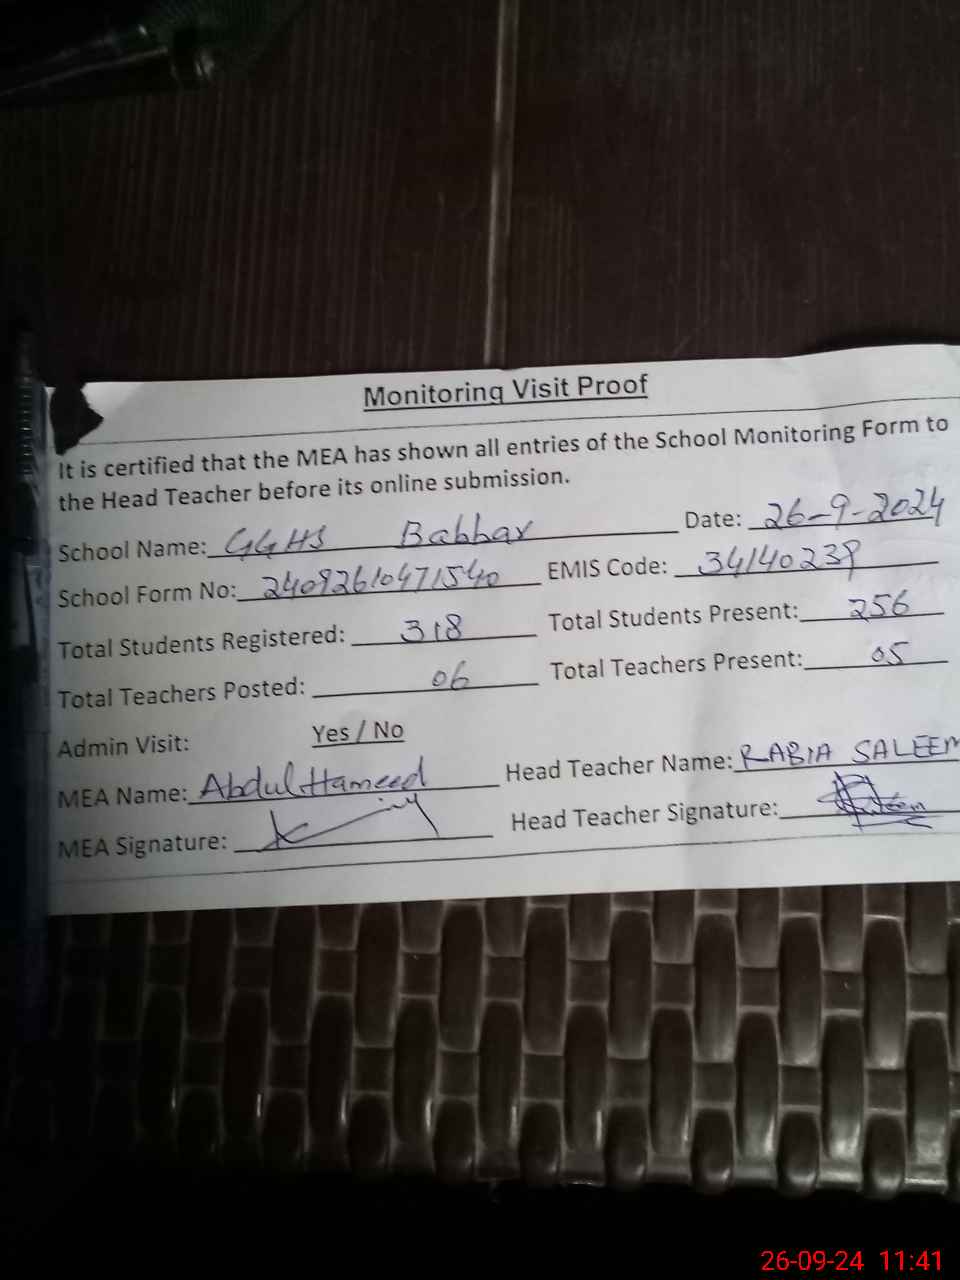 Monitoring Visit Proof
It is certified that the MEA has shown all entries of the School Monitoring Form to
the Head Teacher before its online submission.
School Name: GGHS Babhar Date: 26-9-2024
School Form No: 24092610471540 EMIS Code: 34140239
Total Students Registered: 318 Total Students Present: 256
Total Teachers Posted: 06 Total Teachers Present: 05
Admin Visit: Yes / No
MEA Name: Abdul Hameed Head Teacher Name: RABIA SALEEM
MEA Signature: Head Teacher Signature:
26-09-24 11:41